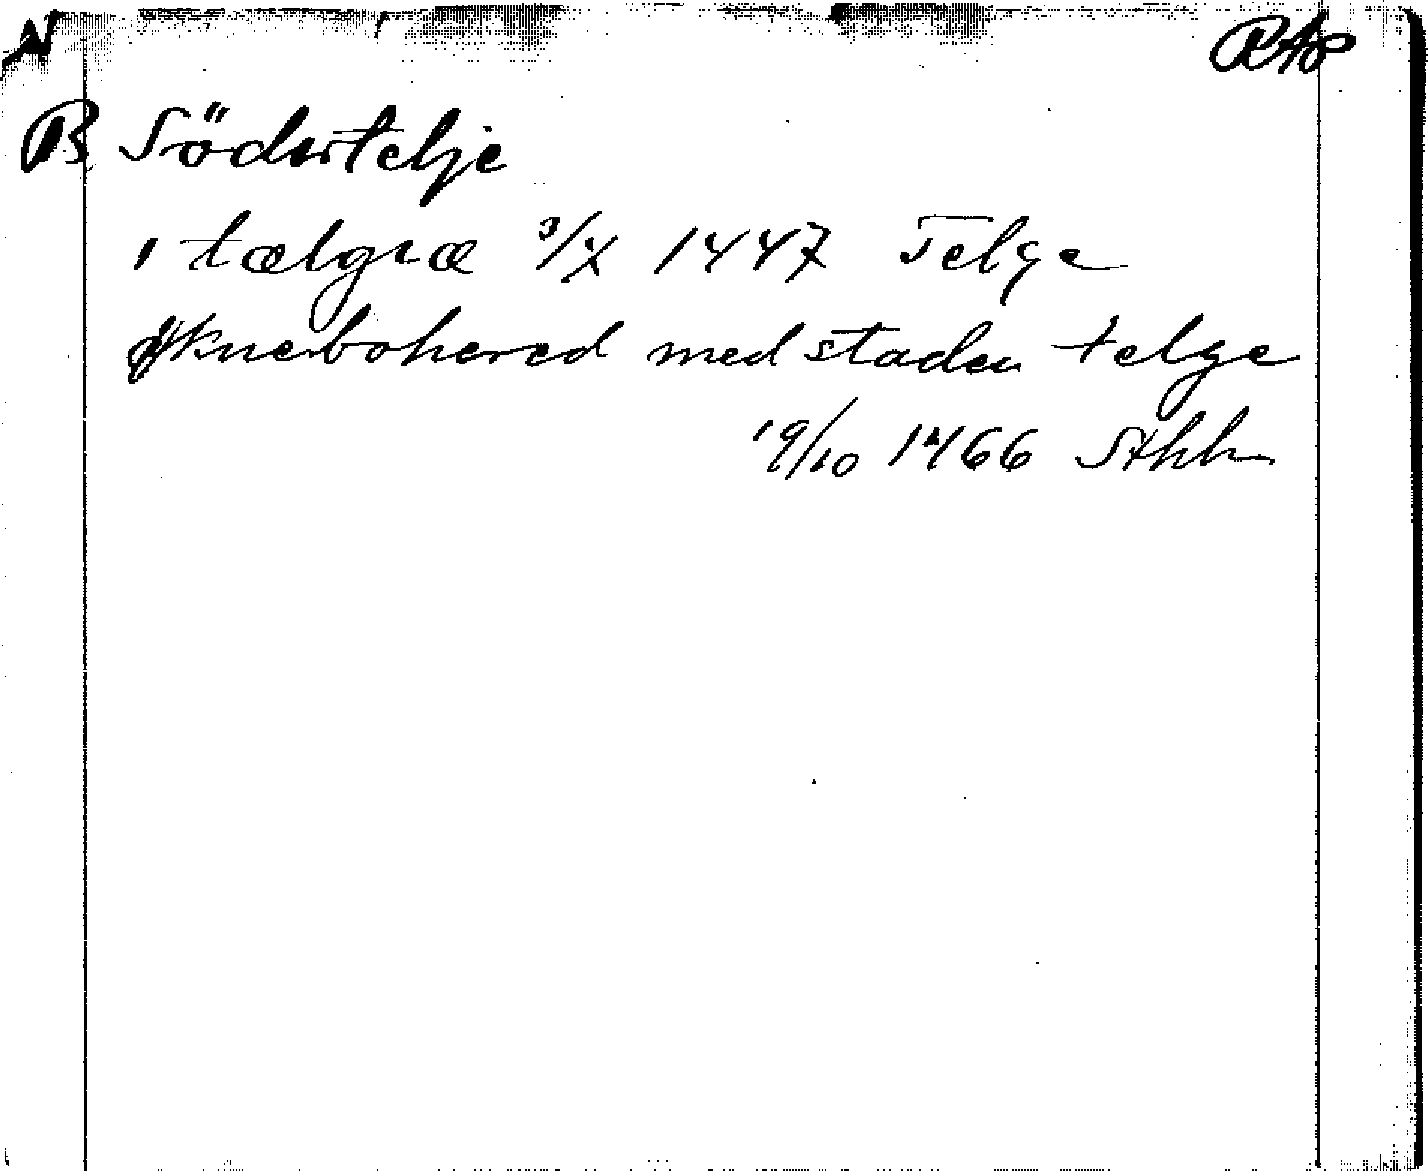 RAp
B Södertelje
i tælgræ 3/X 1447 Telge
Øknebohered med staden telge
19/10 1466 Sthlm